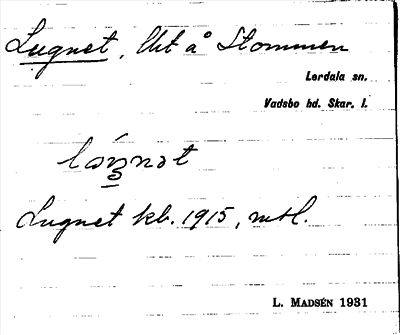 Lugnet, Ut å Stommen
Lerdala sn.
Vadsbo hd. Skar. l.
Lugnet kb. 1915, mtl.
L. MADSÉN 1931